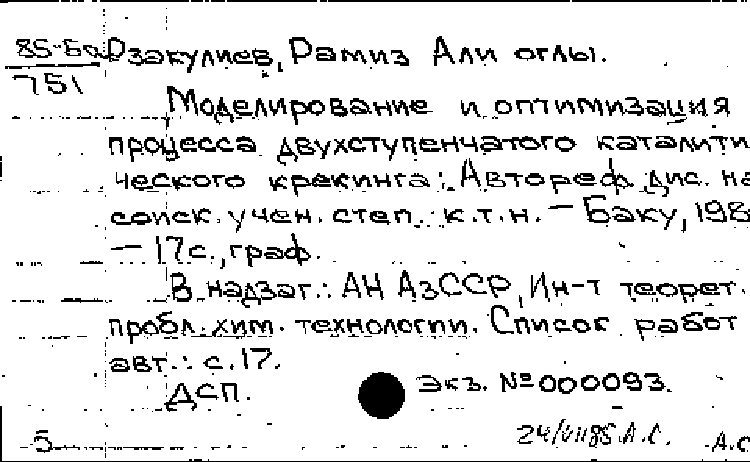 85-5а Дзакулиев, Рамиз Али оглы.
751
Моделирование и оптимизация
процесса двухступенчатого каталити
ческого крекинга: Автореф. дис. на
соиск. учен. степ. к.т.н. — Баку, 198
— 17 с., граф.
В надзаг.: АН АзССР, Ин-т теорет.
пробл. хим. технологии. Список работ
авт.: с. 17.
ДСП. Экз. № 000093.
5 24/VII85 А.С. А.С